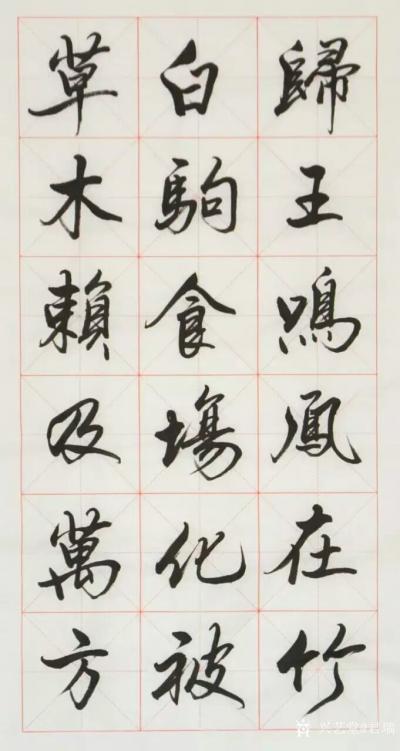 歸王鳴鳳在竹
白駒食場化被
草木賴及萬方
兴艺堂#君瑞